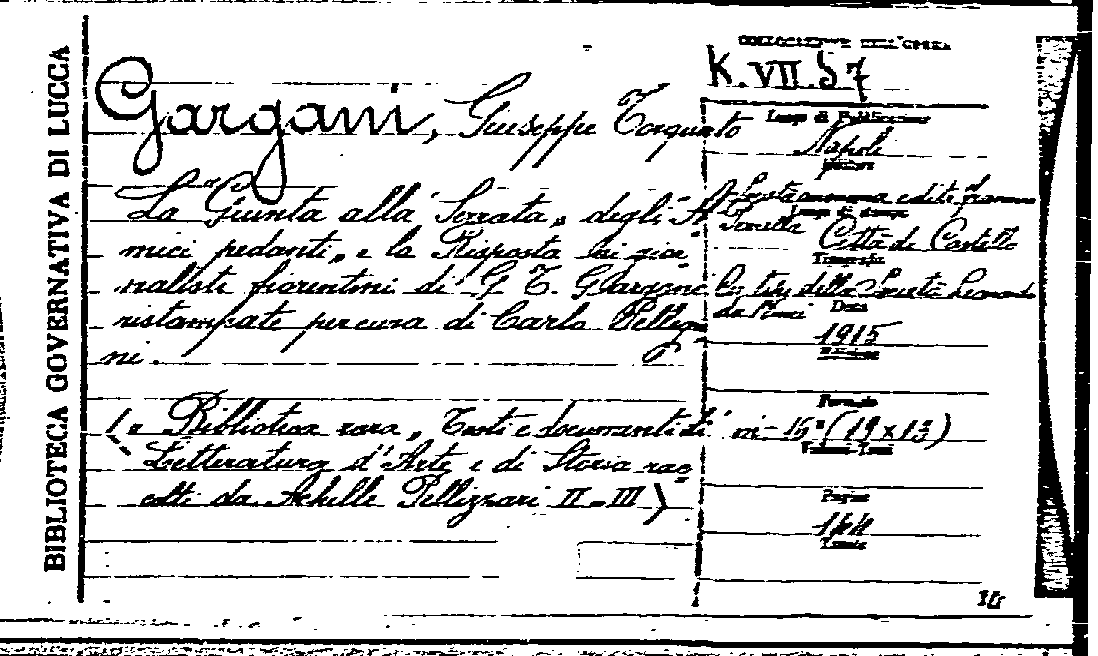 BIBLIOTECA GOVERNATIVA DI LUCCA
COLLOCAZIONE DELL'OPERA
K.VII.57
Gargani, Giuseppe Torquato
La "Giunta alla "Serrata" degli "A-
mici pedanti" e la Risposta dei gior-
nalisti fiorentini di G. T. Gargani
ristampate per cura di Carlo Pellegri-
ni.
(" Biblioteca rara" Testi e documenti di
Letteratura d'Arte e di Storia rac-
colti da Achille Pellizzari II-III)
Luogo di Pubblicazione
Napoli
Editore
Società anonima editrice
F. Perrella
Luogo di stampa
Città di Castello
Tipografia
tip. della Società Leonardo
da Vinci
Data
1915
Edizione
Formato
in-16° (19x13)
Volumi-Tomi
Pagine
144
Tavole